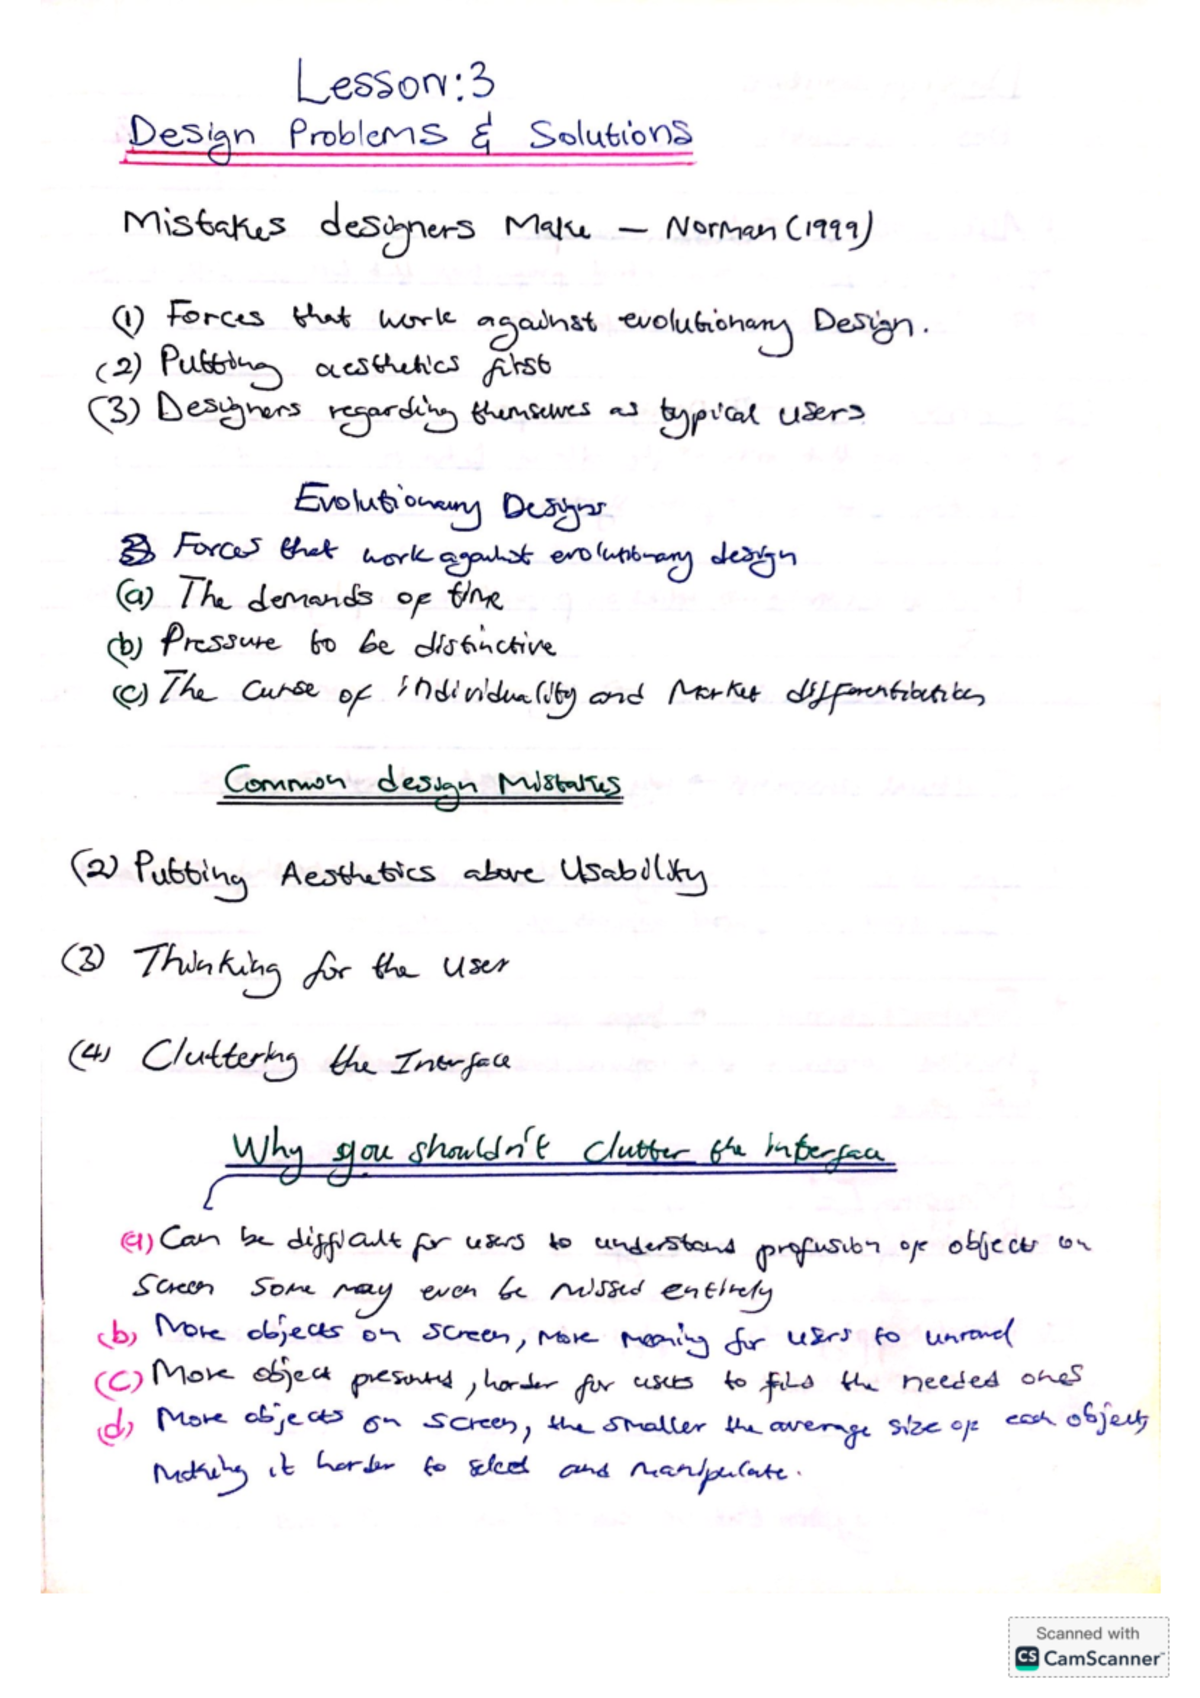 Lesson: 3
Design Problems & Solutions
Mistakes designers Make — Norman (1999)
(1) Forces that work against evolutionary Design.
(2) Putting aesthetics first
(3) Designers regarding themselves as typical users
Evolutionary Designs
Forces that work against evolutionary design
(a) The demands of time
(b) Pressure to be distinctive
(c) The curse of individuality and Market
Common design Mistakes
(2) Putting Aesthetics above Usability
(3) Thinking for the user
(4) Cluttering the Interface
Why you shouldn't clutter the interface
(a) Can be difficult for users to understand profusion of objects on
screen some may even be missed entirely
(b) More objects on screen, more meaning for users to unravel
(c) More object presented, harder for users to find the needed ones
(d) More objects on screen, the smaller the average size of each object,
making it harder to select and manipulate.
Scanned with
CS CamScanner